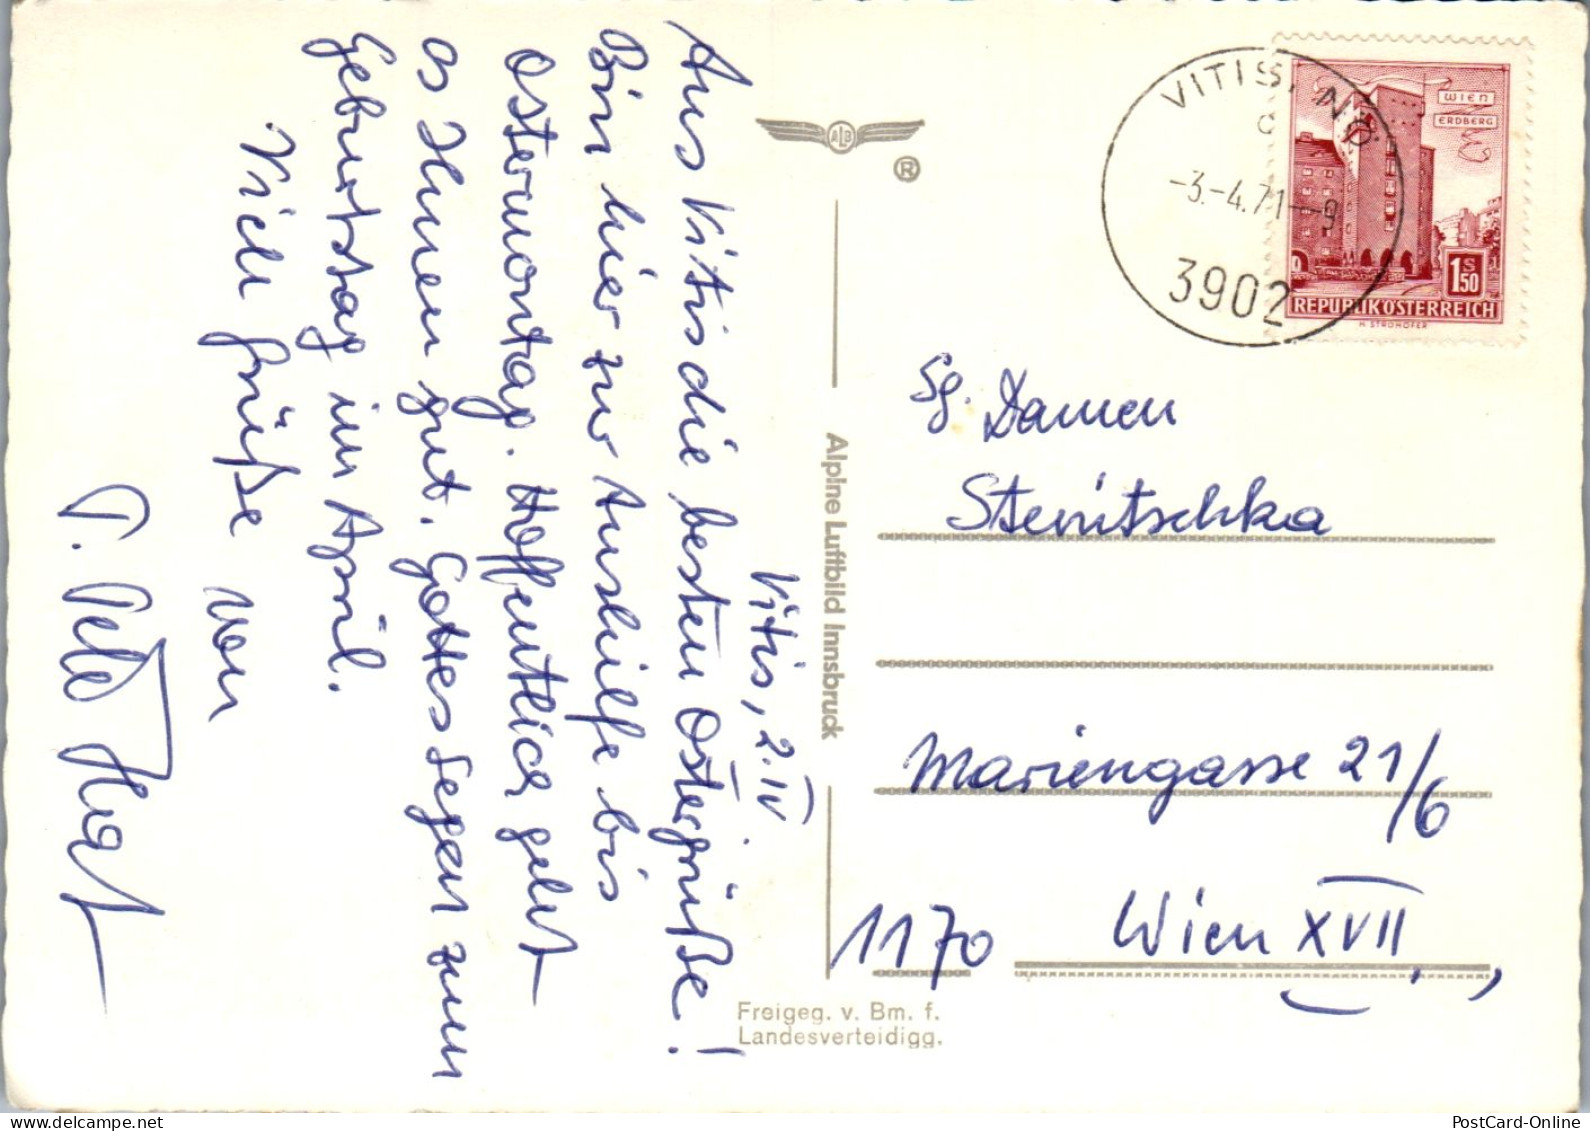 Vitis, 2. IV.
Aus Vitis die besten Ostergrüße!
Bin hier zur Aushilfe bis
Ostermontag. Hoffentlich geht
es Ihnen gut. Gottes Segen zum
Geburtstag im April.
Viele Grüße von
ALB
®
Alpine Luftbild Innsbruck
Freigeg. v. Bm. f.
Landesverteidigg.
VITIS, NÖ
-3.-4.71-9
3902
WIEN
ERDBERG
1S50
REPUBLIK ÖSTERREICH
H. STROHOFER
Sg. Damen
Stenitschka
Mariengasse 21/6
1170 Wien XVII,
PostCard-Online